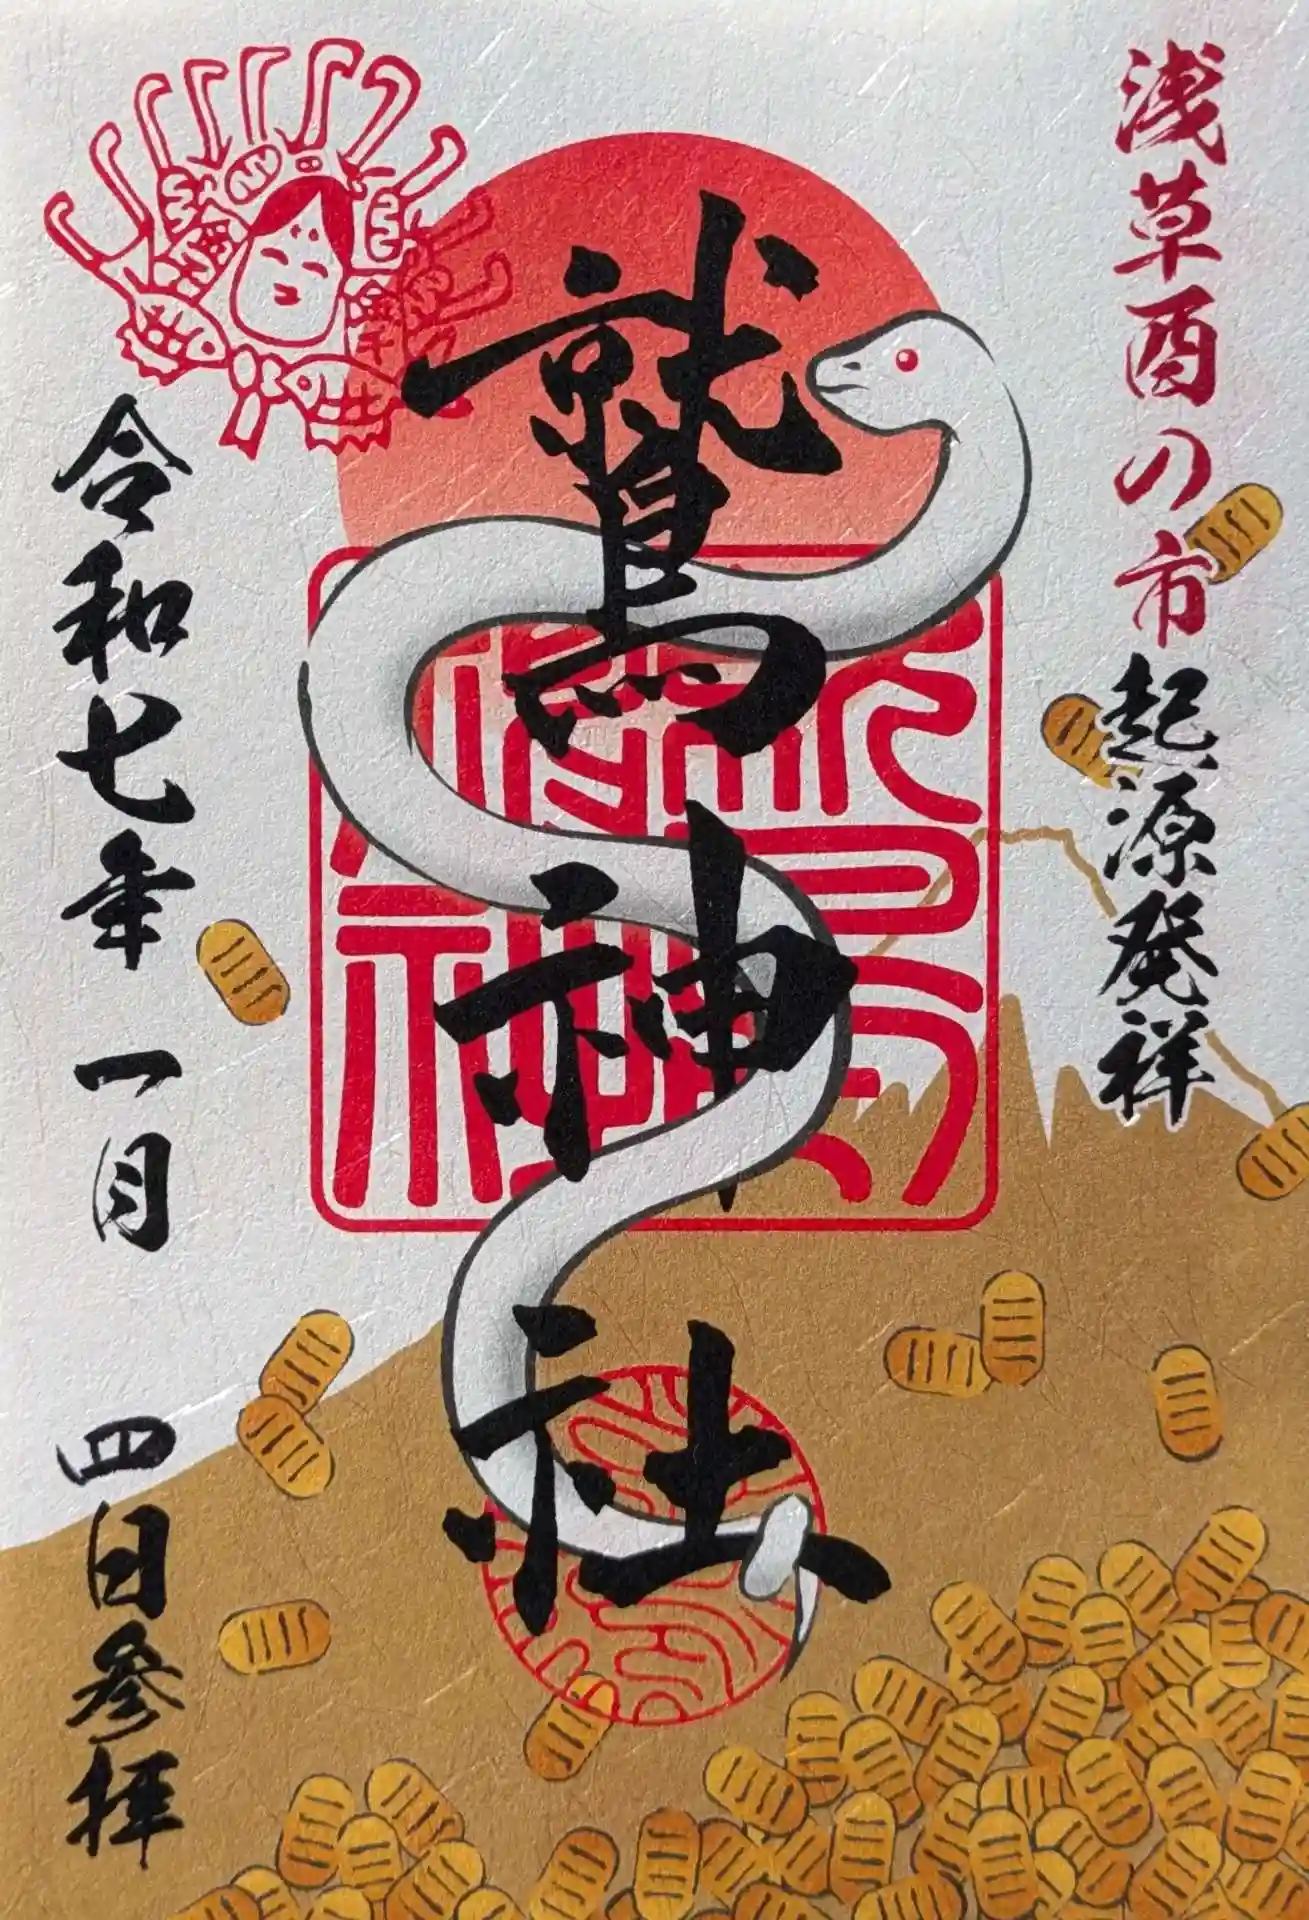 浅草酉の市起源発祥
鷲神社
令和七年 一月 四日参拝